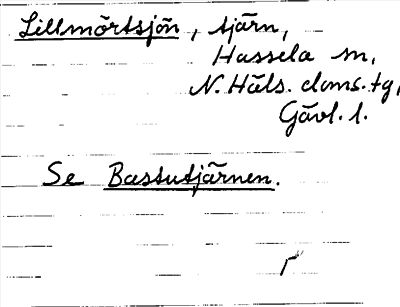 Lillmörtsjön, tjärn,
Hassela sn,
N. Häls. doms.tg,
Gävl. l.
Se Bastutjärnen.